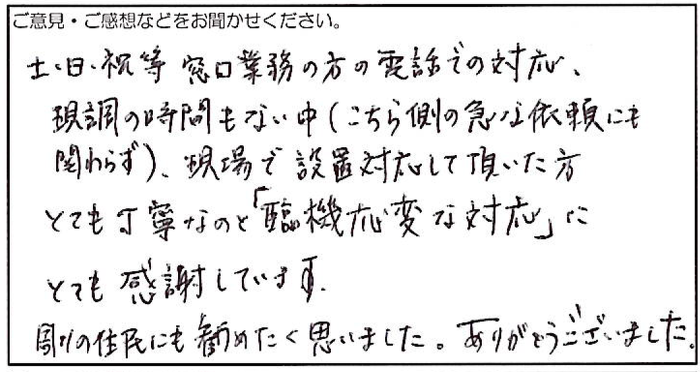 ご意見・ご感想などをお聞かせください。
土・日・祝等 窓口業務の方の電話での対応、
現調の時間もない中(こちら側の急な依頼にも
関わらず)、現場で設置対応して頂いた方
とても丁寧なのと「臨機応変な対応」に
とても感謝しています。
周りの住民にも勧めたく思いました。ありがとうございました。